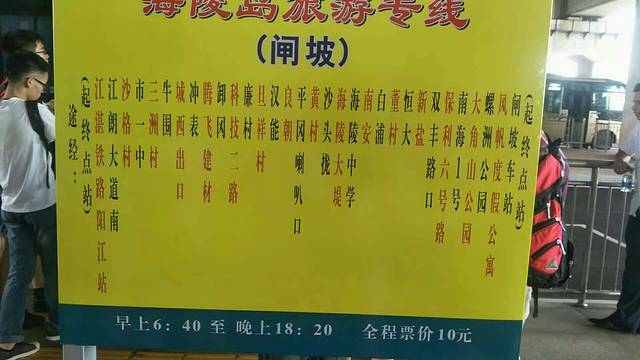 海陵岛旅游专线
(闸坡)
途经：
(起终点站)
江湛铁路阳江站
江朗大道南
沙格村
市一中
三洲村
牛围
城西出口
冲表
腾飞建材
卸冈村
科技二路
廉村
旦祥村
汉能
良朝
平冈喇叭口
黄村
沙头拢
海陵大堤
海陵中学
南安
白浦
董村
恒大
新盐
双丰路口
保利六号路
南海1号
大角山公园
螺洲公园
风帆度假公寓
闸坡车站
(起终点站)
早上6：40 至 晚上18：20 全程票价10元